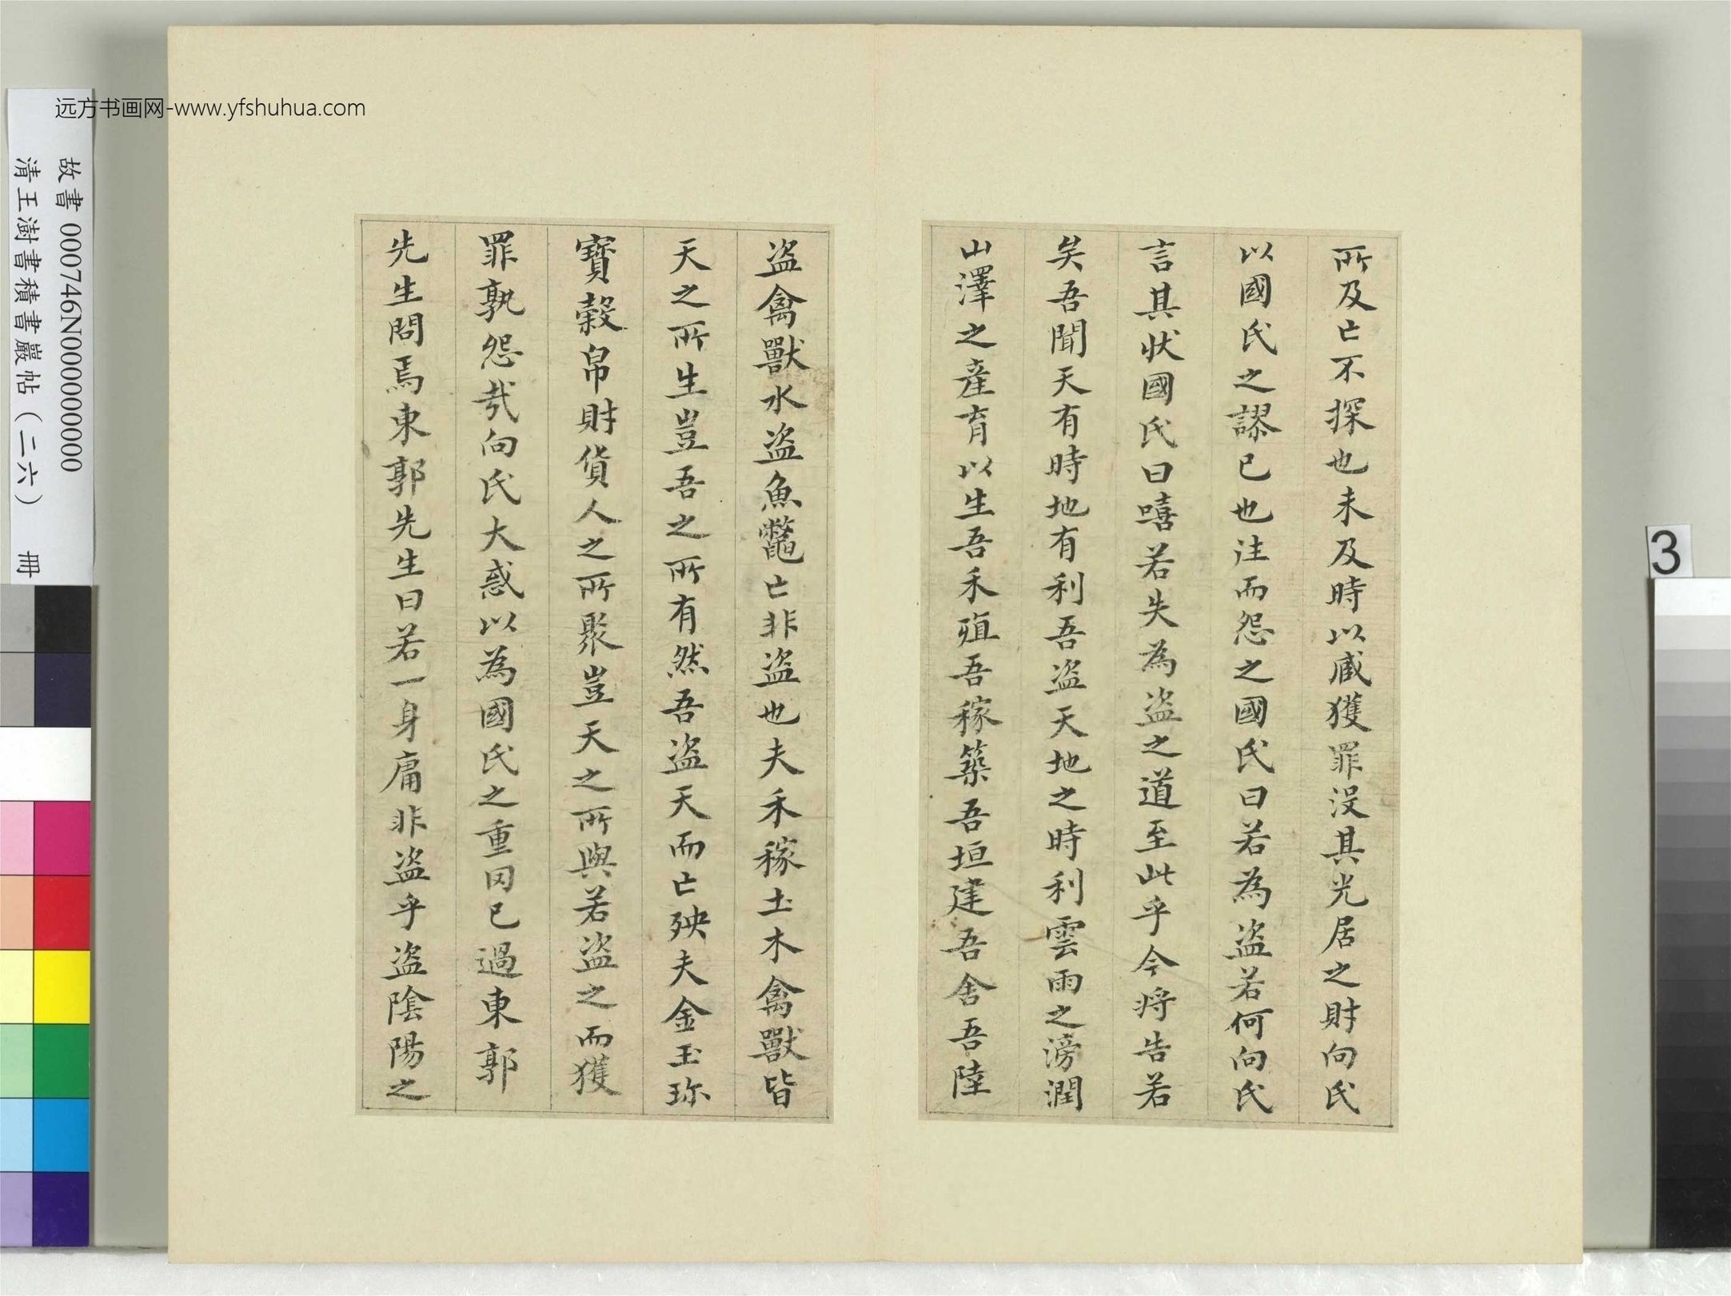 远方书画网-www.yfshuhua.com
故書 000746N000000000
清王澍書積書巖帖（二六） 冊
3
所及亡不探也未及時以贓獲罪沒其先居之財向氏
以國氏之謬已也往而怨之國氏曰若為盜若何向氏
言其狀國氏曰嘻若失為盜之道至此乎今將告若
矣吾聞天有時地有利吾盜天地之時利雲雨之滂潤
山澤之產育以生吾禾殖吾稼築吾垣建吾舍吾陸
盜禽獸水盜魚鼈亡非盜也夫禾稼土木禽獸皆
天之所生豈吾之所有然吾盜天而亡殃夫金玉珎
寶穀帛財貨人之所聚豈天之所與若盜之而獲
罪孰怨哉向氏大惑以為國氏之重罔已過東郭
先生問焉東郭先生曰若一身庸非盜乎盜陰陽之